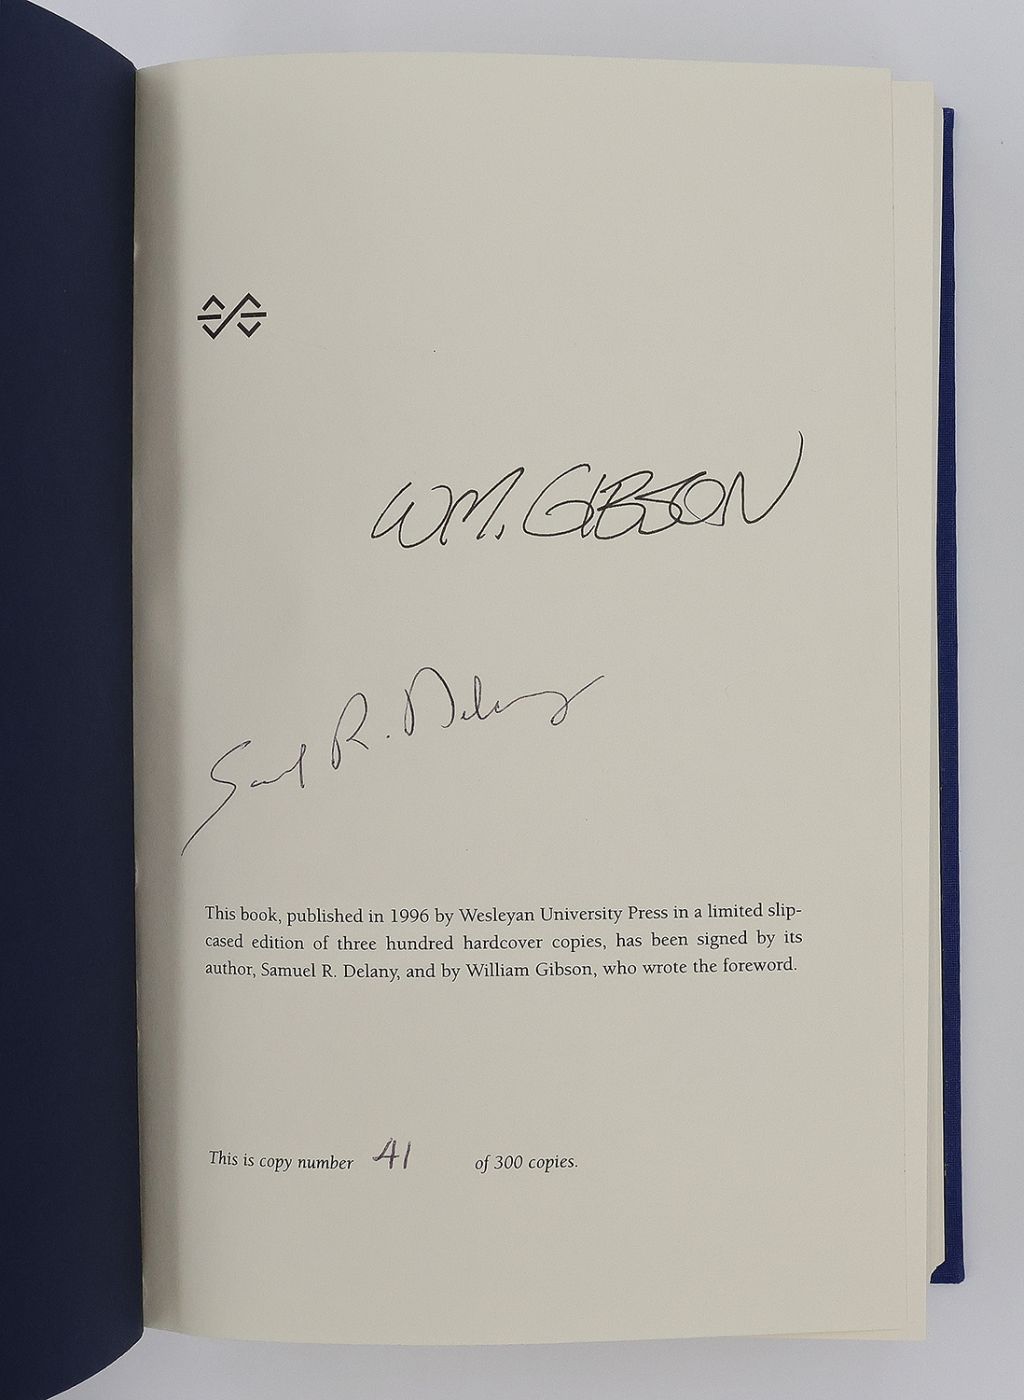 WM. GIBSON
Samuel R. Delany
This book, published in 1996 by Wesleyan University Press in a limited slip-
cased edition of three hundred hardcover copies, has been signed by its
author, Samuel R. Delany, and by William Gibson, who wrote the foreword.
This is copy number 41 of 300 copies.